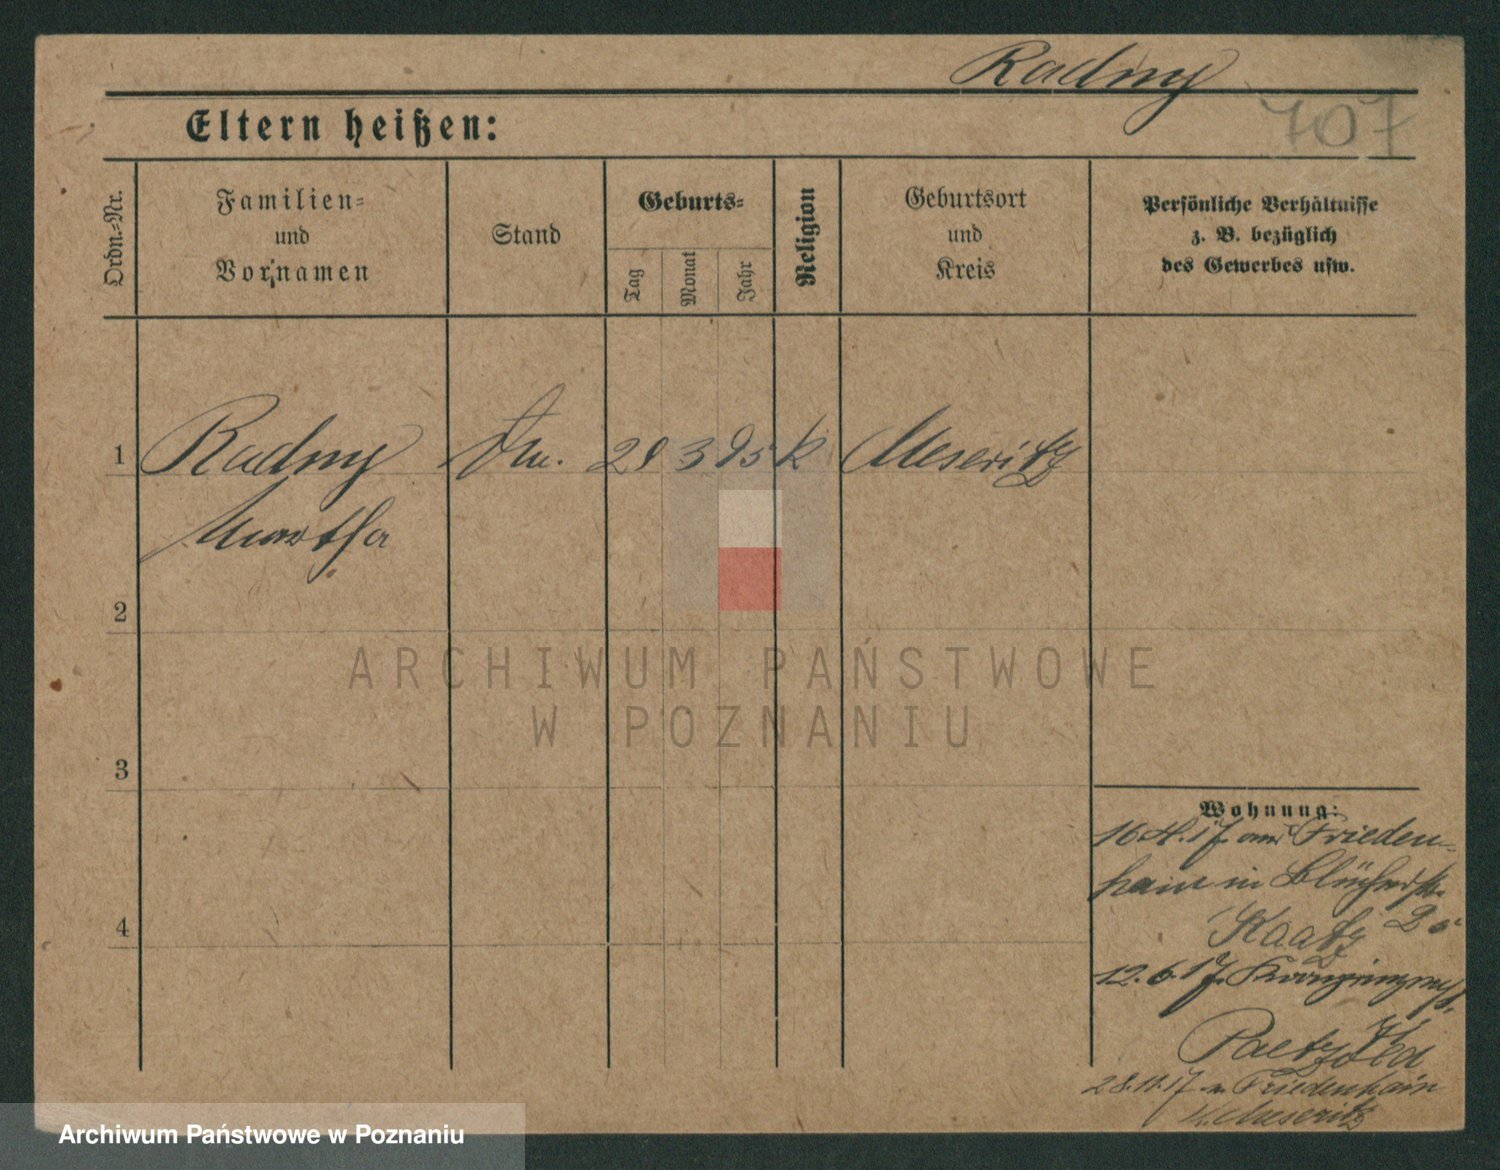 Radny
707
Eltern heißen:
Ordn.-Nr.
Familien-
und
Vornamen
Stand
Geburts-
Tag
Monat
Jahr
Religion
Geburtsort
und
Kreis
Persönliche Verhältnisse
z. B. bezüglich
des Gewerbes usw.
1 Radny 3 95 k Meseritz
Martha
2
3
4
ARCHIWUM PAŃSTWOWE
W POZNANIU
Wohnung:
16.4.17 Frieden-
hain in
Kaatz
12.6.17
Paetzold
28.11.17 n. Friedenhain
Meseritz
Archiwum Państwowe w Poznaniu